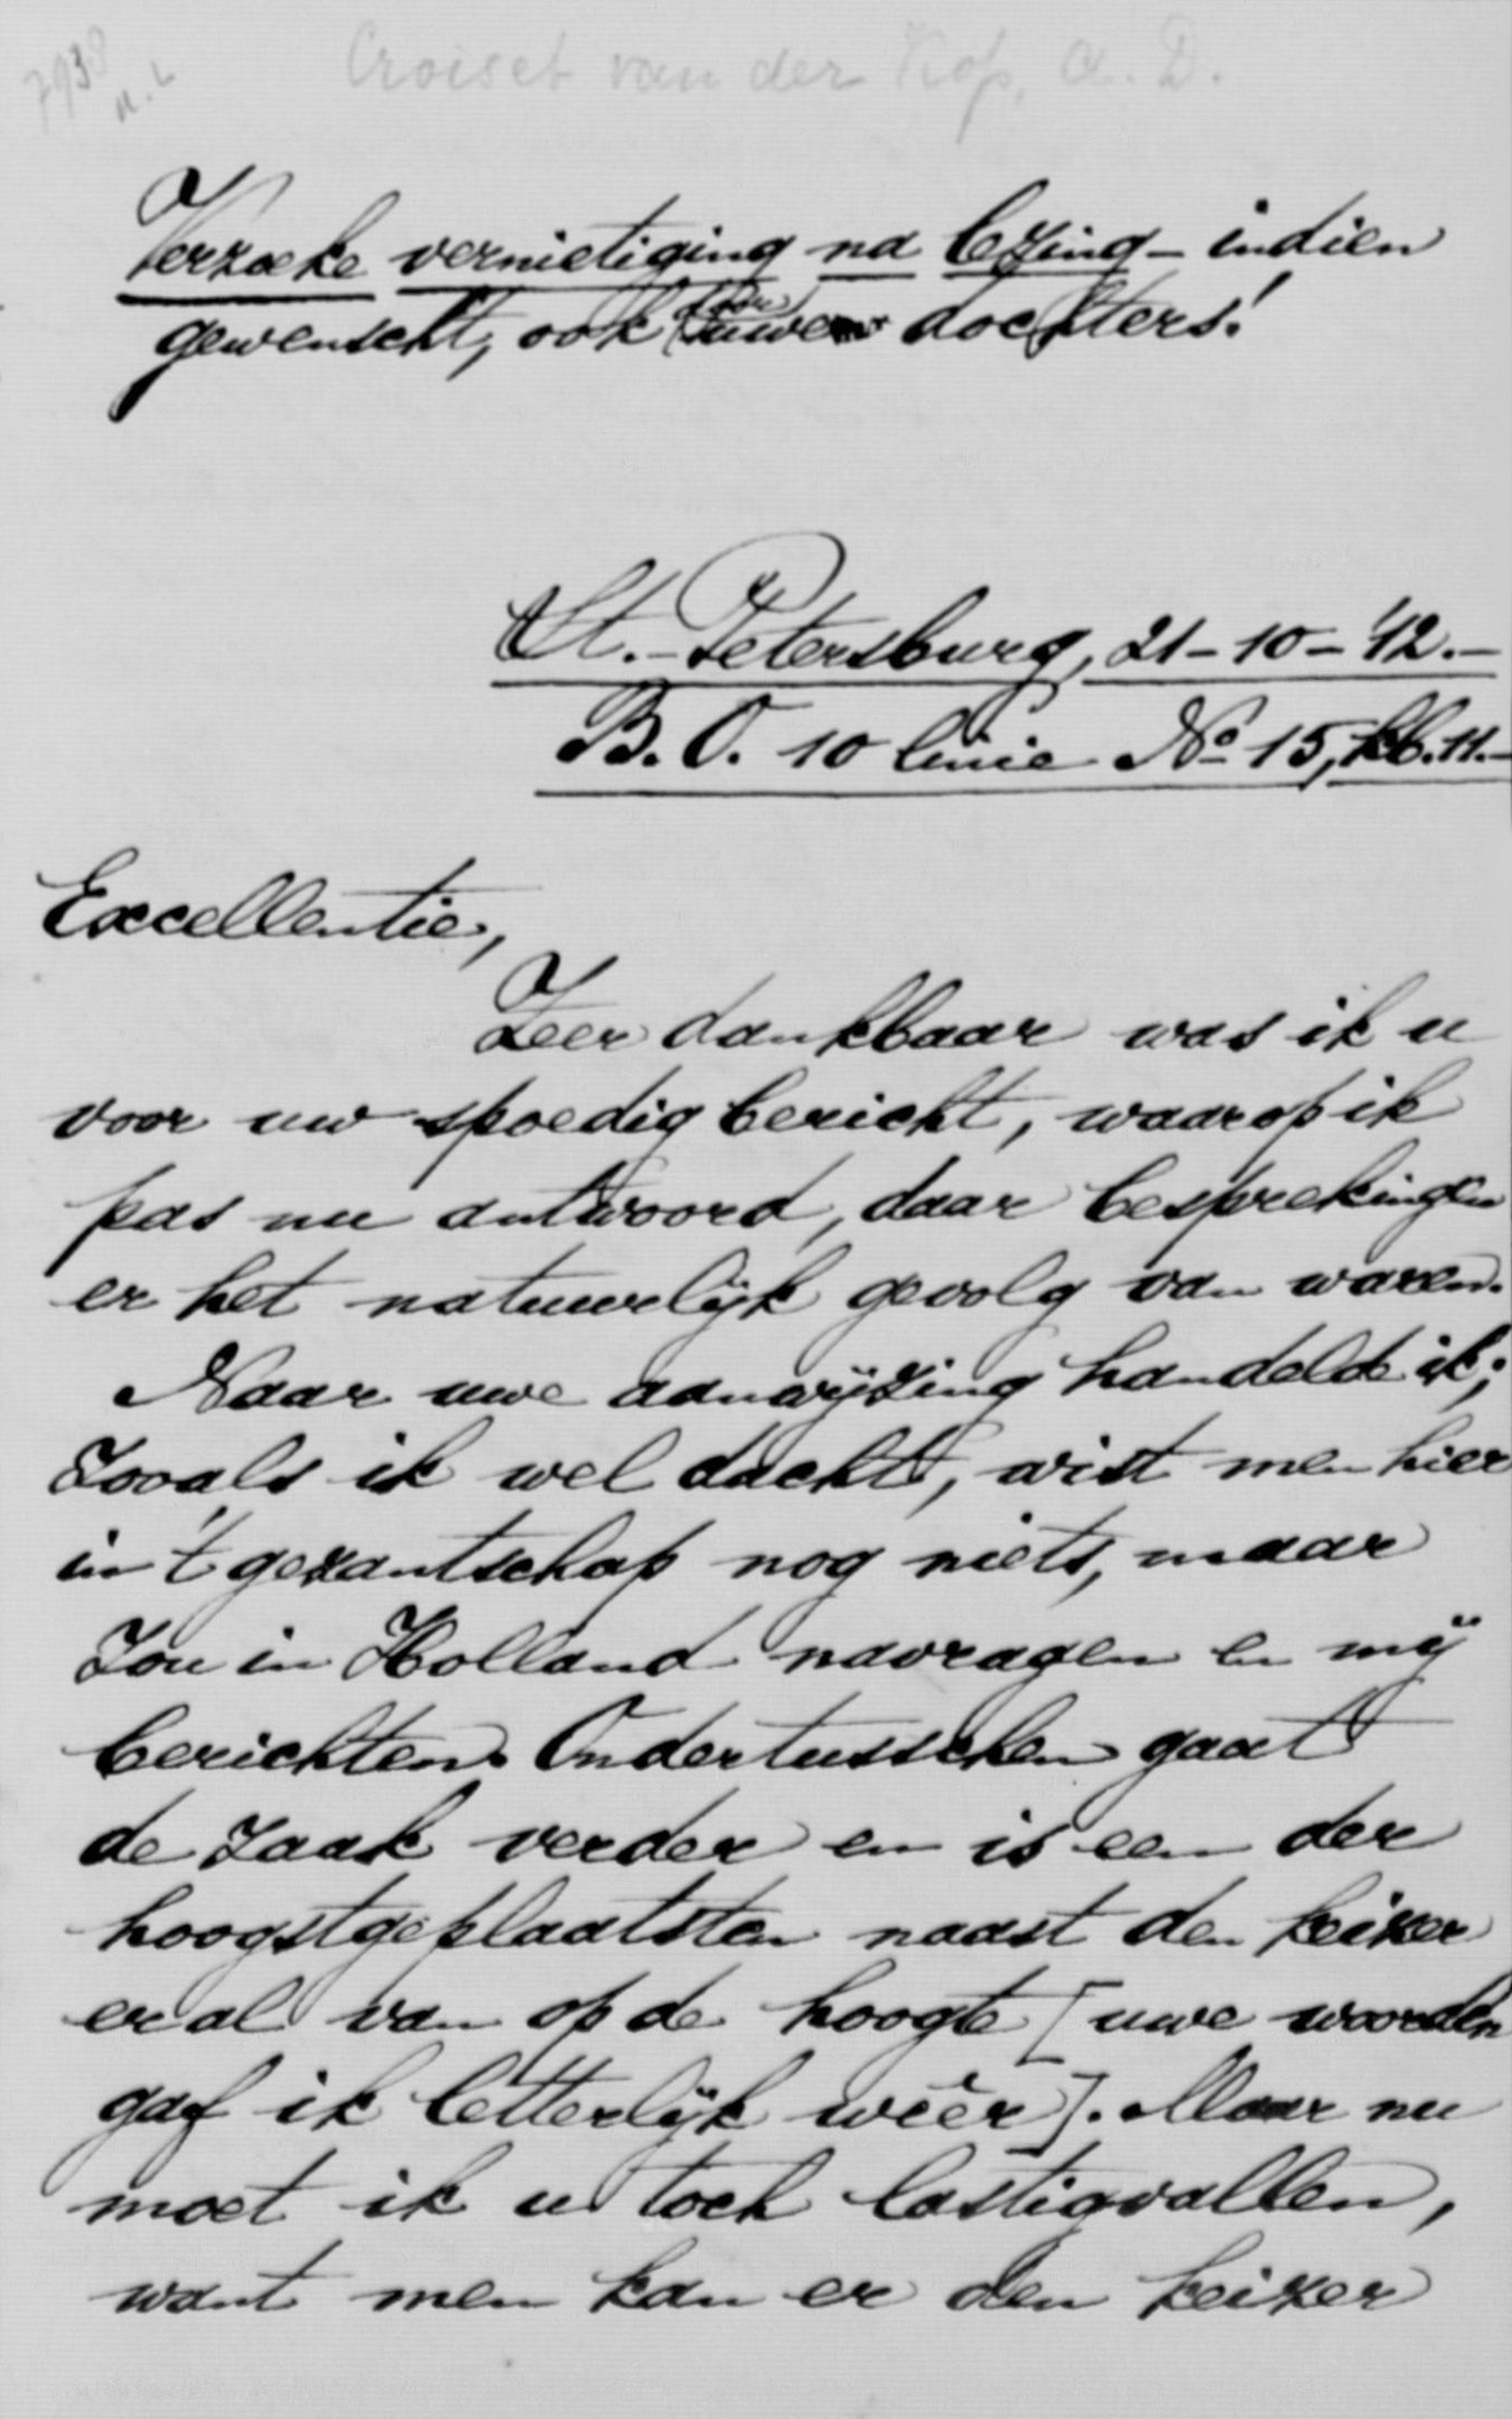 7938
n. L
Croiset van der Kop, A. D.
Verzoeke vernietiging na lezing – indien
gewenscht, ook door uwe dochters!
St.-Petersburg, 21-10-'12.–
B.O. 10 linie No 15, kb. 11.–
Excellentie,
Zeer dankbaar was ik u
voor uw spoedig bericht, waarop ik
pas nu antwoord, daar besprekingen
er het natuurlijk gevolg van waren.
Naar uwe aanwijzing handelde ik;
zooals ik wel dacht, wist men hier
in 't gezantschap nog niets, maar
zou in Holland navragen en mij
berichten. Ondertusschen gaat
de zaak verder en is een der
hoogstgeplaatsten naast den keizer
er al van op de hoogte [uwe woorden
gaf ik letterlijk wéér]. Maar nu
moet ik u toch lastigvallen,
want men kan er den keizer